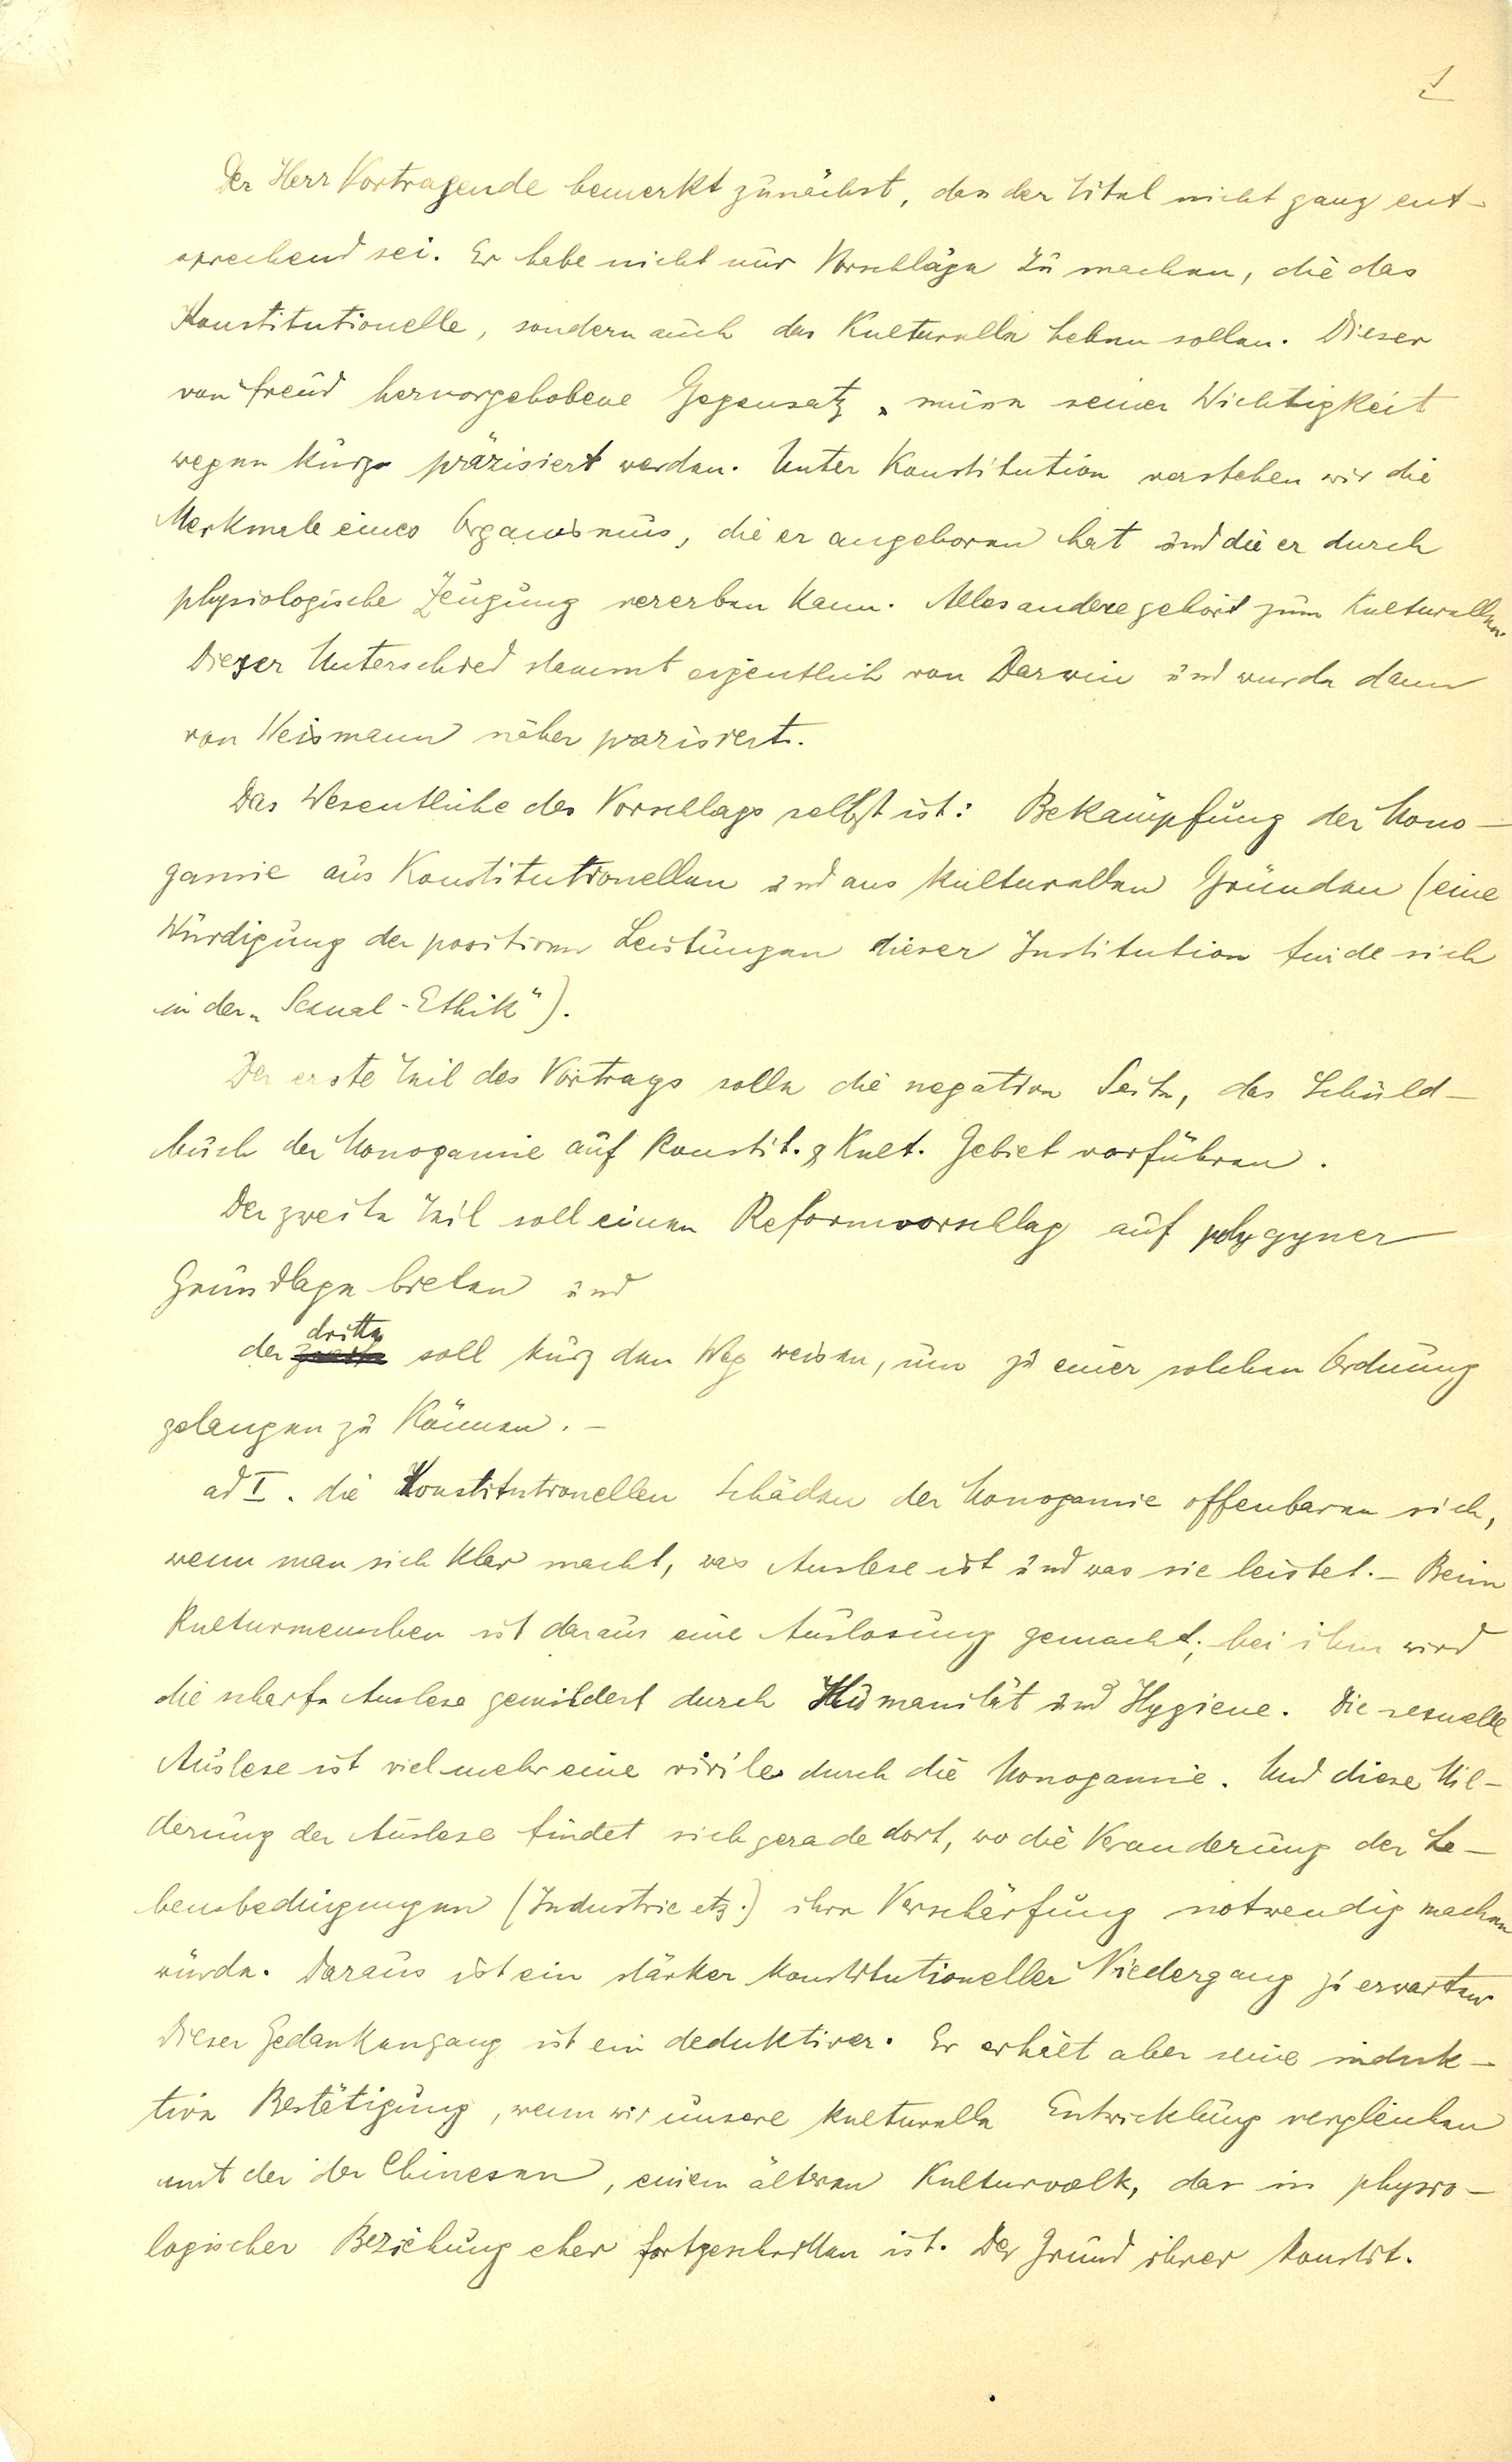 1
Der Herr Vortragende bemerkt zunächst, dass der Titel nicht ganz ent-
sprechend sei. Er habe nicht nur Vorschläge zu machen, die das
Konstitutionelle, sondern auch das Kulturelle heben sollen. Dieser
von Freud hervorgehobene Gegensatz muss seiner Wichtigkeit
wegen kurz präzisiert werden. Unter Konstitution verstehen wir die
Merkmale eines Organismus, die er angeboren hat und die er durch
physiologische Zeugung vererben kann. Alles andere gehört zum Kulturellen.
Dieser Unterschied stammt eigentlich von Darwin und wurde dann
von Weismann näher präzisiert.
Das Wesentliche des Vorschlags selbst ist: Bekämpfung der Mono-
gamie aus Konstitutionellen und aus kulturellen Gründen (eine
Würdigung der positiven Leistungen dieser Institution finde sich
in der „Sexual-Ethik").
Der erste Teil des Vortrags solle die negative Seite, das Schuld-
buch der Monogamie auf konstit. & Kult. Gebiet vorführen.
Der zweite Teil soll einen Reformvorschlag auf polygyner
Grundlage bieten und
der zweite dritte soll kurz den Weg weisen, um zu einer solchen Ordnung
gelangen zu können. –
ad I. die Konstitutionellen Schäden der Monogamie offenbaren sich,
wenn man sich klar macht, was Auslese ist und was sie leistet. – Beim
Kulturmenschen ist daraus eine Auslosung gemacht; bei ihm wird
die scharfe Auslese gemildert durch Humanität und Hygiene. Die sexuelle
Auslese ist vielmehr eine virile durch die Monogamie. Und diese Mil-
derung der Auslese findet sich gerade dort, wo die Veränderung der Le-
bensbedingungen (Industrie etz.) ihre Verschärfung notwendig machen
würde. Daraus ist ein starker konstitutioneller Niedergang zu erwarten
Dieser Gedankengang ist ein deduktiver. Er erhält aber seine induk-
tive Bestätigung, wenn wir unsere kulturelle Entwicklung vergleichen
mit der der Chinesen, einem älteren Kulturvolk, das in physio-
logischer Beziehung eher fortgeschritten ist. Der Grund ihrer konstit.